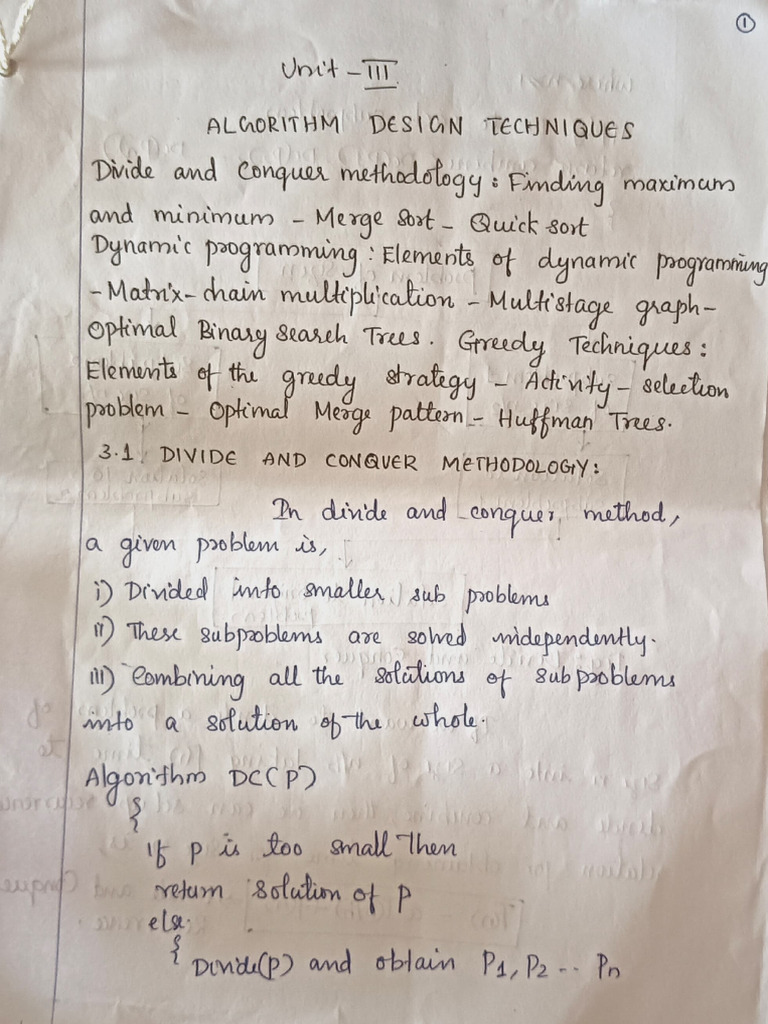 1
Unit - III
ALGORITHM DESIGN TECHNIQUES
Divide and Conquer methodology : Finding maximum
and minimum - Merge sort - Quick sort
Dynamic programming : Elements of dynamic programming
- Matrix - chain multiplication - Multistage graph -
Optimal Binary Search Trees. Greedy Techniques :
Elements of the greedy strategy - Activity - selection
problem - Optimal Merge pattern - Huffman Trees.
3.1 DIVIDE AND CONQUER METHODOLOGY :
In divide and conquer method,
a given problem is,
i) Divided into smaller sub problems
ii) These subproblems are solved independently.
iii) Combining all the solutions of subproblems
into a solution of the whole.
Algorithm DC(P)
{
If P is too small then
return solution of P
else
{
Divide(P) and obtain P1, P2 .. Pn